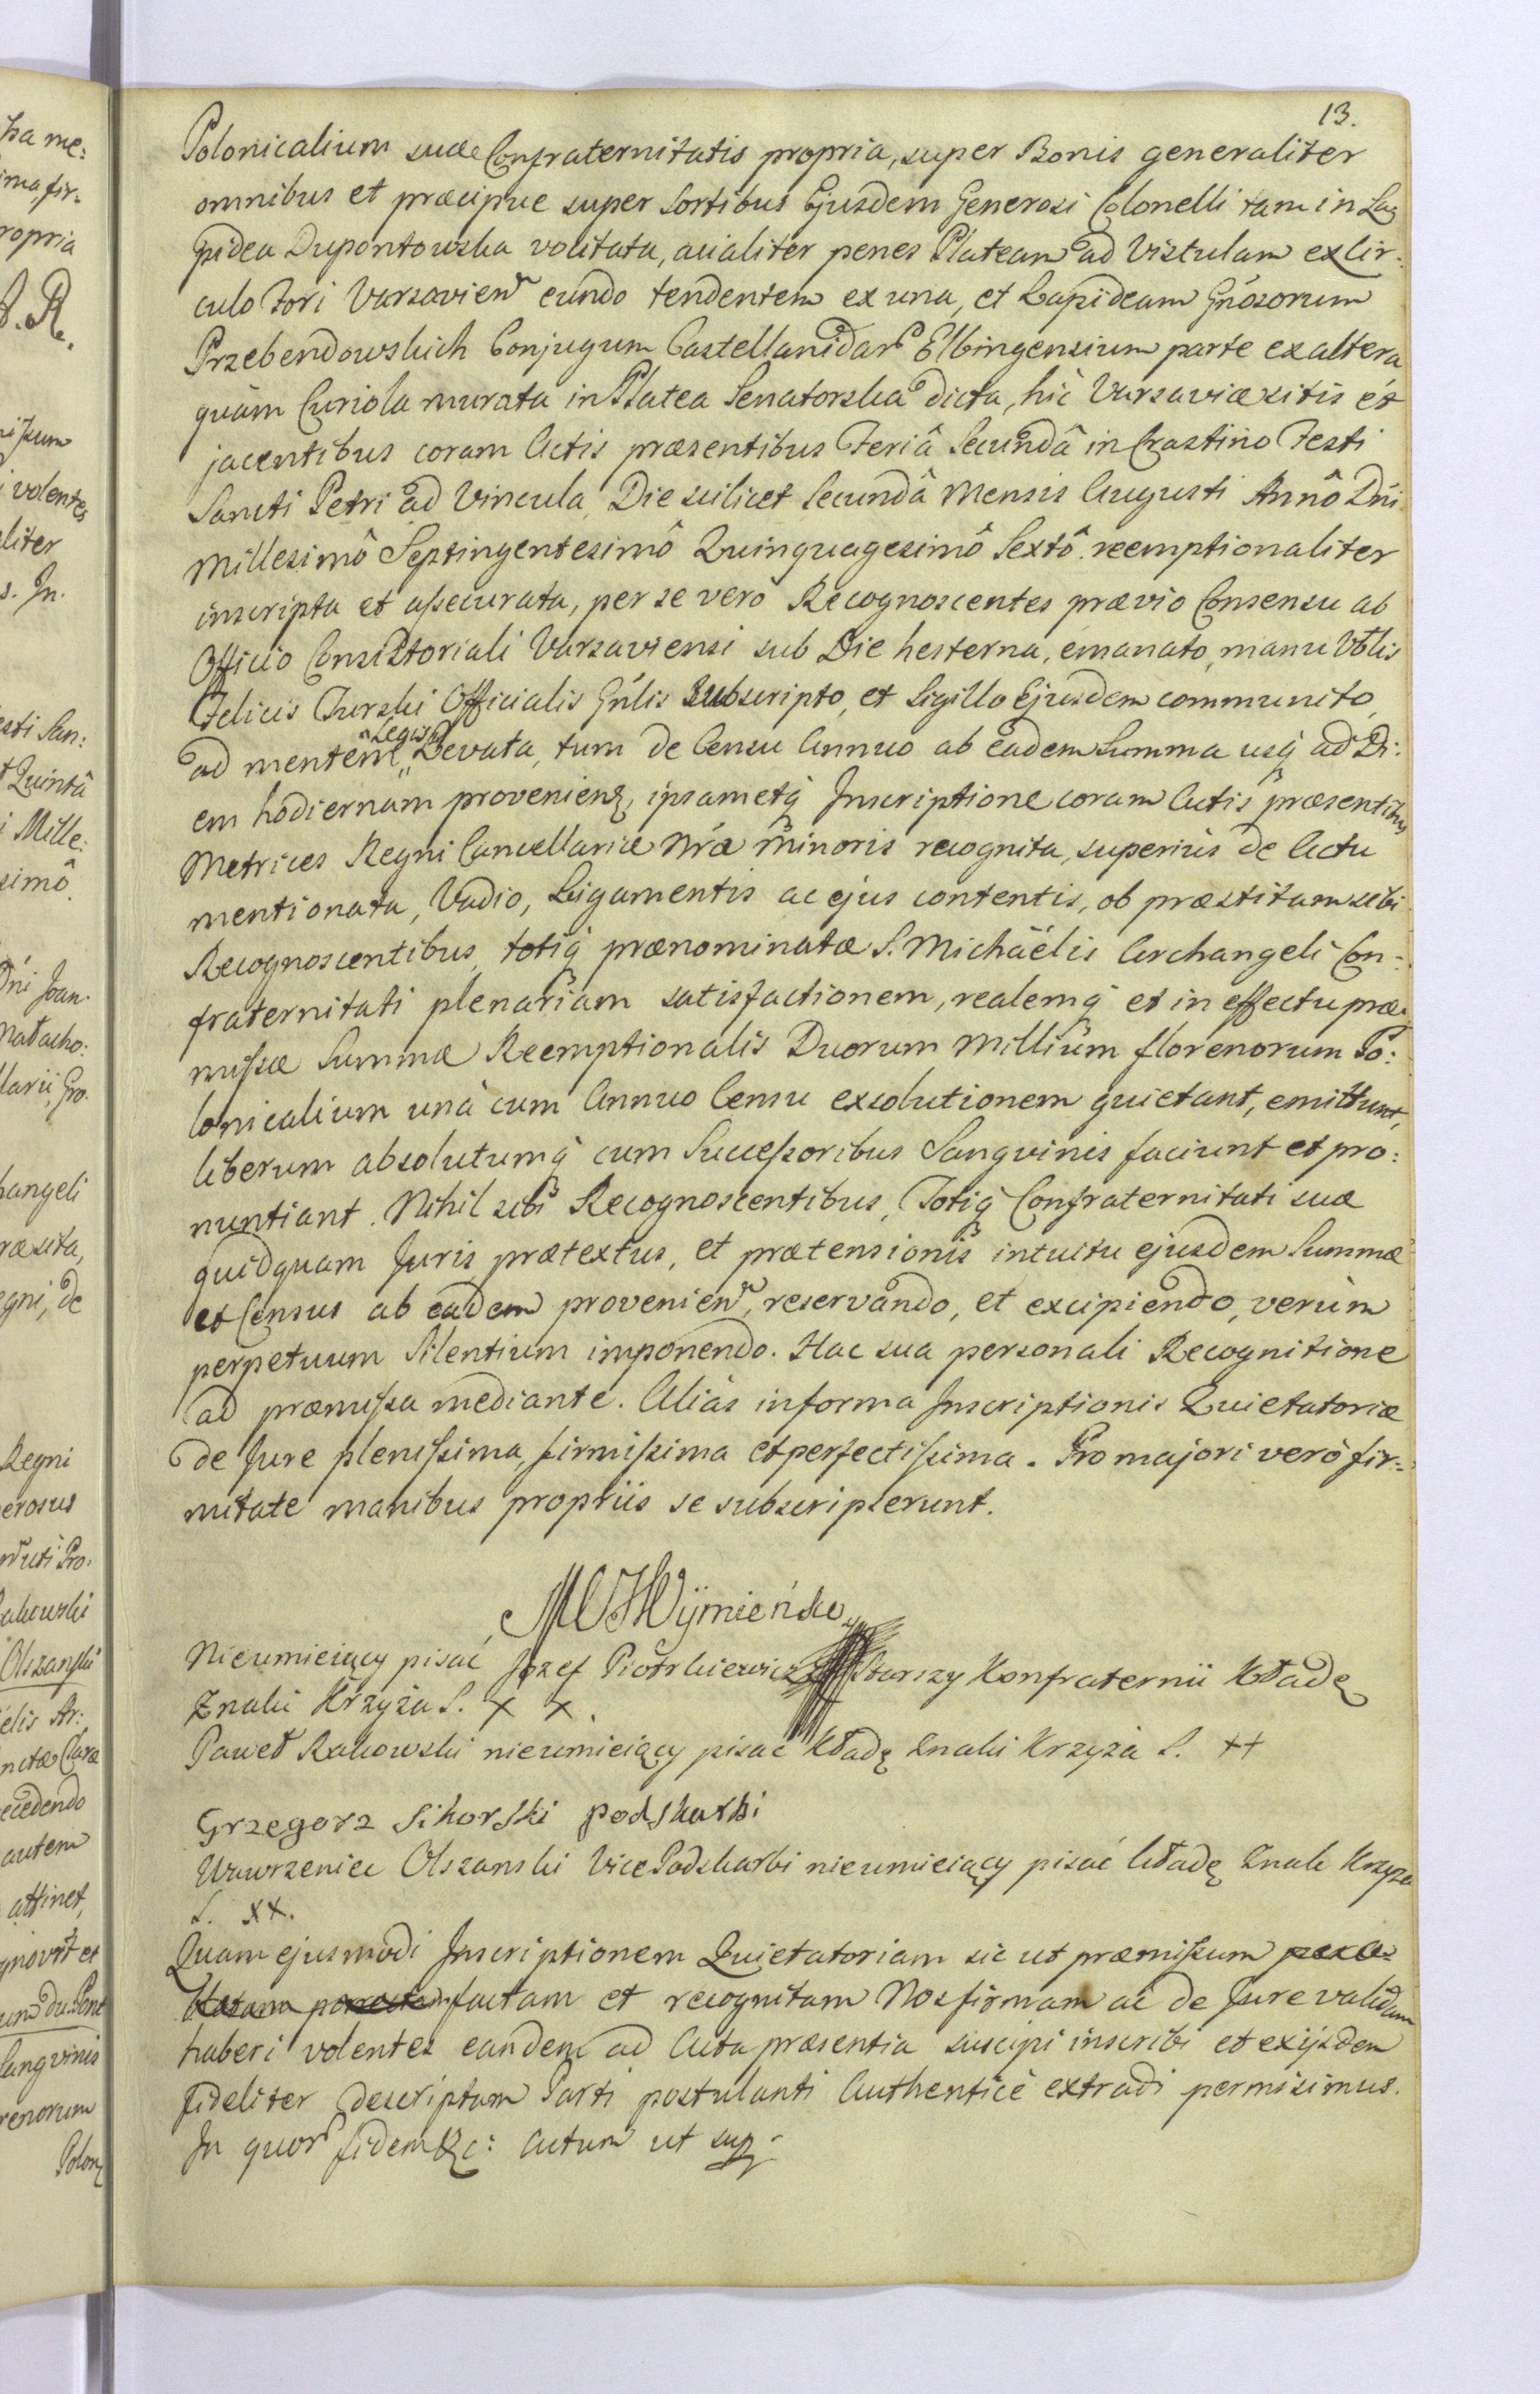 13.
Polonicalium suae Confraternitatis propria, super Bonis generaliter
omnibus et præcipue super Sortibus Ejusdem Generosi Colonelli tam in La=
pidea Dupontowska vocitata, acialiter penes Plateam ad Vistulam ex Cir:
culo Fori Varsavien eundo tendentem ex una, et Lapideam Gnosorum
Przebendowskich Conjugum Castellanidar Elbingensium parte ex altera
quàm Curiola murata in Platea Senatorska dicta, hic Varsaviæ sitis et
jacentibus coram Actis præsentibus Feriâ Secundâ in Crastino Festi
Sancti Petri ad Vincula, Die scilicet Secundâ Mensis Augusti Annô Dni
Millesimô Septingentesimô Quinquagesimô Sextô reemptionaliter
inscripta et assecurata, per se verò Recognoscentes prævio Consensu ab
Officio Consistoriali Varsaviensi sub Die hesterna, emanato, manu Vblis
Felicis Turski Officialis Gnlis Subscripto, et Sigillo Ejusdem communito,
ad mentem Legis Levata, tum de Censu Annuo ab eadem Summa usq ad Di:
em hodiernam provenien, ipsametq Inscriptione coram Actis præsentibus
Metrices Regni Cancellariæ Nræ Minoris recognita, superius de Actu
mentionata, Vadio, Ligamentis ac ejus contentis, ob præstitam sibi
Recognoscentibus, totiq prænominatæ S. Michaëlis Archangeli Con:
fraternitati plenariam satisfactionem, realemq et in effectu præ:
missæ Summæ Reemptionalis Duorum Millium florenorum Po:
lonicalium unà cum Annuo Censu exsolutionem quietant, emittunt,
liberum absolutumq cum Successoribus Sangvinis faciunt et pro:
nuntiant. Nihil sibi Recognoscentibus, Totiq Confraternitati suæ
quidquam Juris prætextus, et prætensionis intuitu ejusdem Summæ
et Census ab eadem provenien, reservando, et excipiendo, verùm
perpetuum Silentium imponendo. Hac sua personali Recognitione
ad præmissa mediante. Aliàs in forma Inscriptionis Quietatoriæ
de Jure plenissima, firmissima et perfectissima. Pro majori verò fir:
mitate manibus propriis se subscripserunt.
Nieumieiący pisać Jozef Piotrkiewicz Starszy Konfraternii Kładę
Znaki Krzyża S. x x.
Paweł Rakowski nieumieiący pisać Kładę Znaki Krzyża S. ++
Grzegorz Sikorski podskarbi
Wawrzeniec Olszanski Vice Podskarbi nieumieiący pisać kładę Znak Krzyża
S. xx.
Quam ejusmodi Inscriptionem Quietatoriam sic ut præmissum
factam et recognitam Nos firmam ac de Jure validam
haberi volentes eandem ad Acta præsentia suscipi inscribi et exijsdem
fideliter descriptam Parti postulanti Authenticè extradi permisimus.
In quor fidem &c: Actum ut sup.